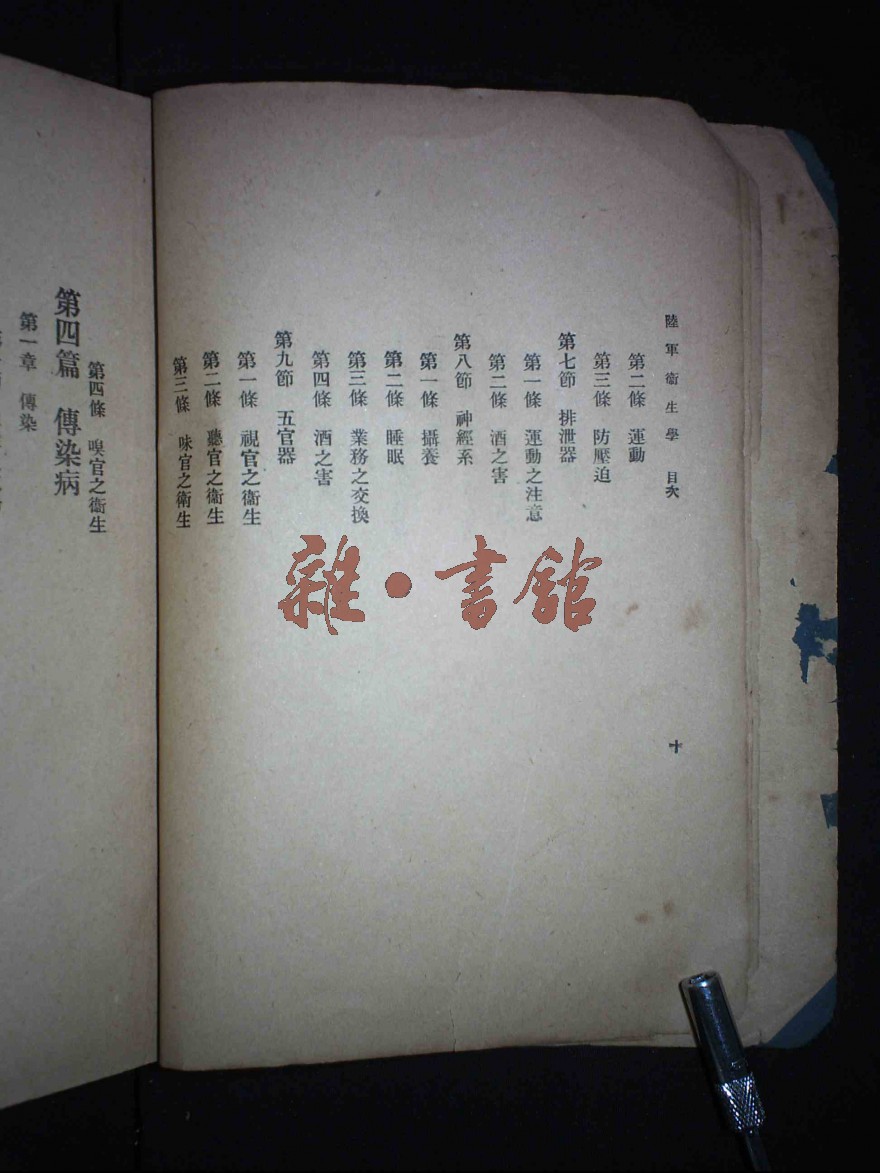 陸軍衞生學 目次
第二條 運動
第三條 防壓迫
第七節 排泄器
第一條 運動之注意
第二條 酒之害
第八節 神經系
第一條 攝養
第二條 睡眠
第三條 業務之交換
第四條 酒之害
第九節 五官器
第一條 視官之衞生
第二條 聽官之衞生
第三條 味官之衞生
十
第四條 嗅官之衞生
第四篇 傳染病
第一章 傳染
雜·書館